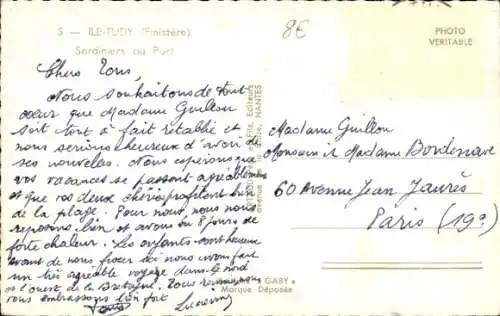 5 — ILE-TUDY (Finistère)
Sardiniers au Port
8€
PHOTO
VERITABLE
Chers Tous,
Nous souhaitons de tout
cœur que Madame Guillou
soit tout à fait rétablie et
nous serions heureux d'avoir de
ses nouvelles. Nous espérons que
vos vacances se passent agréablement
et que vos deux chéries profitent bien
de la plage. Pour nous, nous nous
reposons bien et avons eu 8 jours de
forte chaleur. Les enfants sont heureux
avant de nous fixer ici nous avons fait
un très agréable voyage dans le nord
et l'ouest de la Bretagne. Tous
vous embrassons bien fort
Editeurs
NANTES
« GABY »
Marque Déposée
Madame Guillou
Monsieur et Madame Bordenave
60 Avenue Jean Jaurès
Paris (19e)